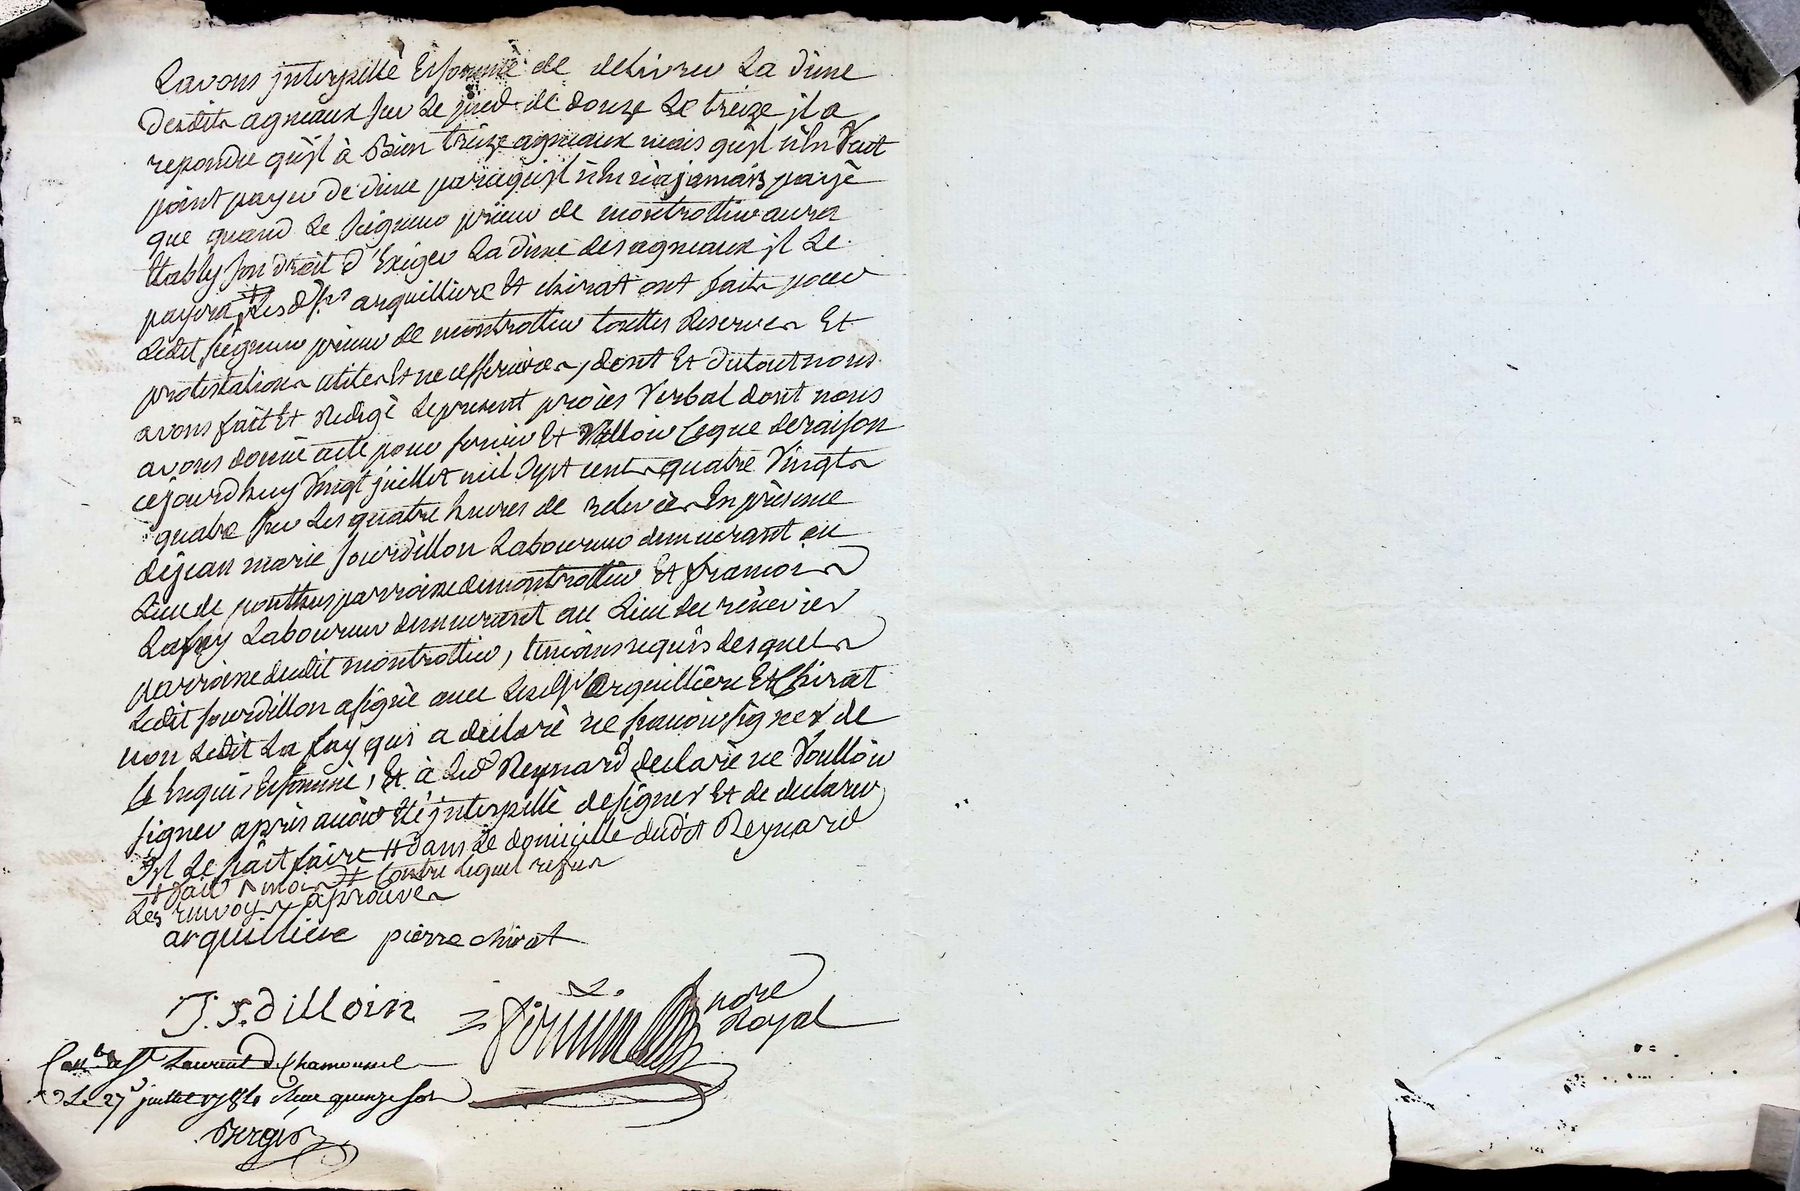 Lavons jnterpellé Et sommé de delivrer La dime
desdits agneaux sur Le pied de douze Le treize jl a
repondu qu'jl à Bien treize agneaux mais qu'jl n'En Veut
point payer de dime parcequ'jl n'En a jamais payé
que quand Le seigneur prieur de montrottier aura
Etably son droit d'Exiger La dime des agneaux jl Le
payera ‡ Lesd. srs arquilliere Et chirat ont fait pour
Ledit seigneur prieur de montrottier touttes Reserves Et
protestations utiles Et necesseraires, dont Et du tout nous
avons fait Et Redigé Le present procès Verbal dont nous
avons donné acte pour servir Et Valloir Ce que de raison
cejourdhuy Vingt juillet mil sept cents quatre Vingts
quatre sur Les quatre heures de relevées En présence
de jean marie sourdillon Laboureur demeurant au
Lieu de ponthus parroisse de montrottier Et francois
Lafay Laboureur demeurant au Lieu du
parroisse dudit montrottier, temoins requis desquels
Ledit sourdillon a signé avec Lesd. srs arquilliere Et Chirat
non Ledit La fay qui a déclaré ne scavoir signer de
ce Enquis Et sommé, Et à Led. Reynard declaré ne Voulloir
signer après avoir Eté jnterpellé de signer Et de declarer
s'jl Le sçait faire # dans Le domicille dudit Reynard
‡ contre Lequel refus
Les renvoys aprouvés
arquilliere pierre chirat
J. S. dilloin
nore
Royal
Conlé a St Laurent de Chamousset
Le 27 juillet 1784 Reçu quinze sols